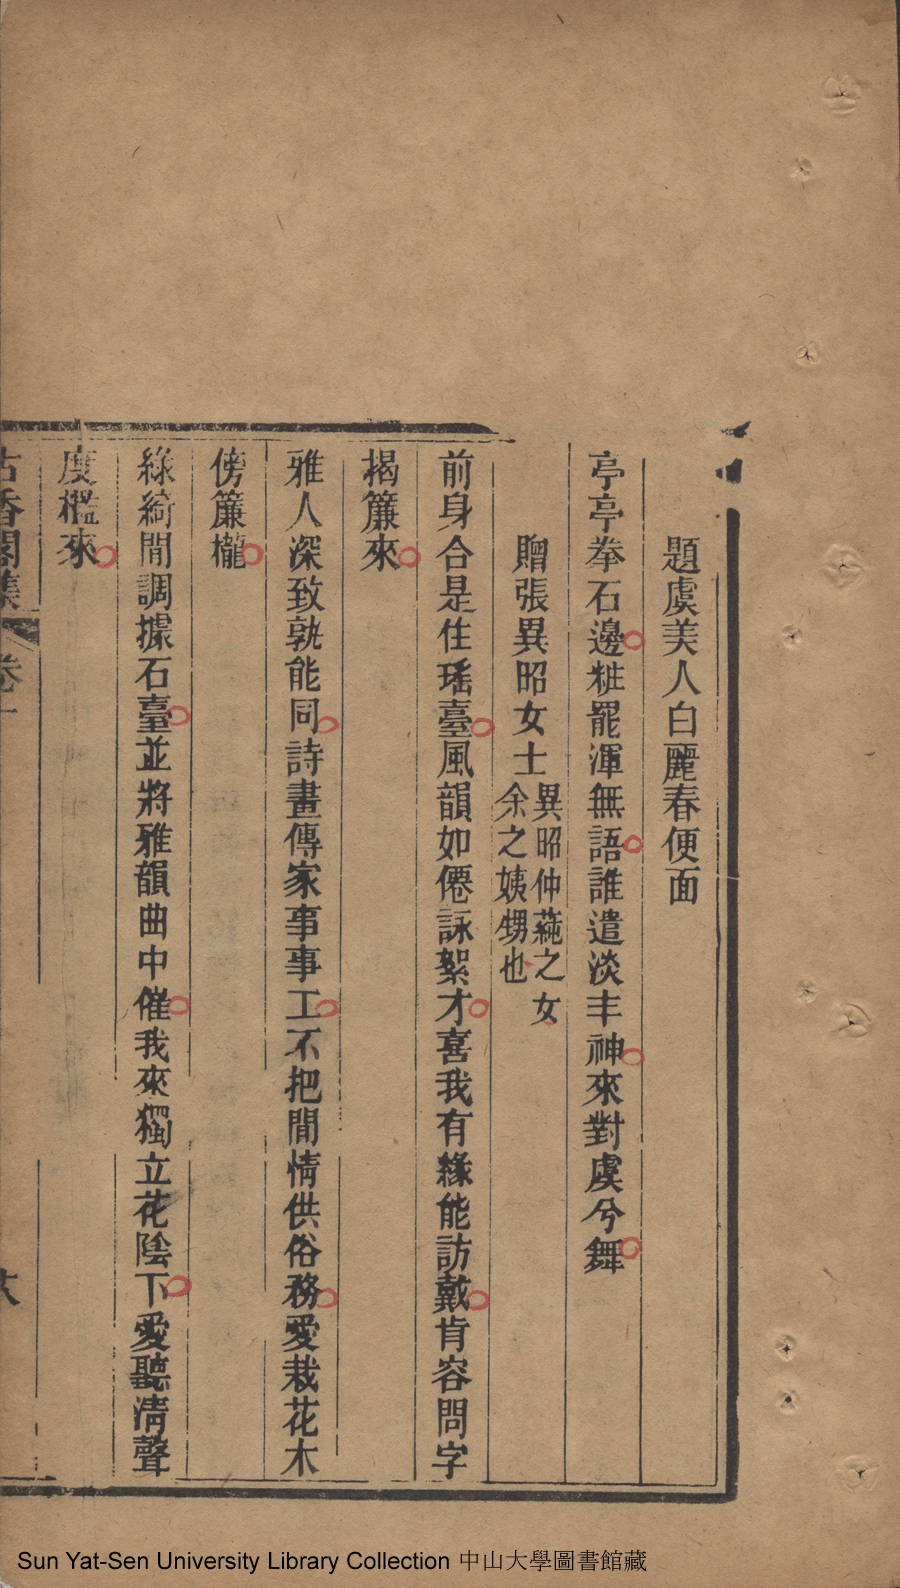 題虞美人白麗春便面
亭亭拳石邊粧罷渾無語誰遣淡丰神來對虞兮舞
贈張異昭女士異昭仲蕤之女
余之姨甥也
前身合是住瑤臺風韻如僊詠絮才喜我有緣能訪戴肯容問字
揭簾來
雅人深致孰能同詩畫傳家事事工不把閒情供俗務愛栽花木
傍簾櫳
綠綺閒調據石臺並將雅韻曲中催我來獨立花陰下愛聽清聲
度檻來
古香閣集
卷一
Sun Yat-Sen University Library Collection 中山大學圖書館藏